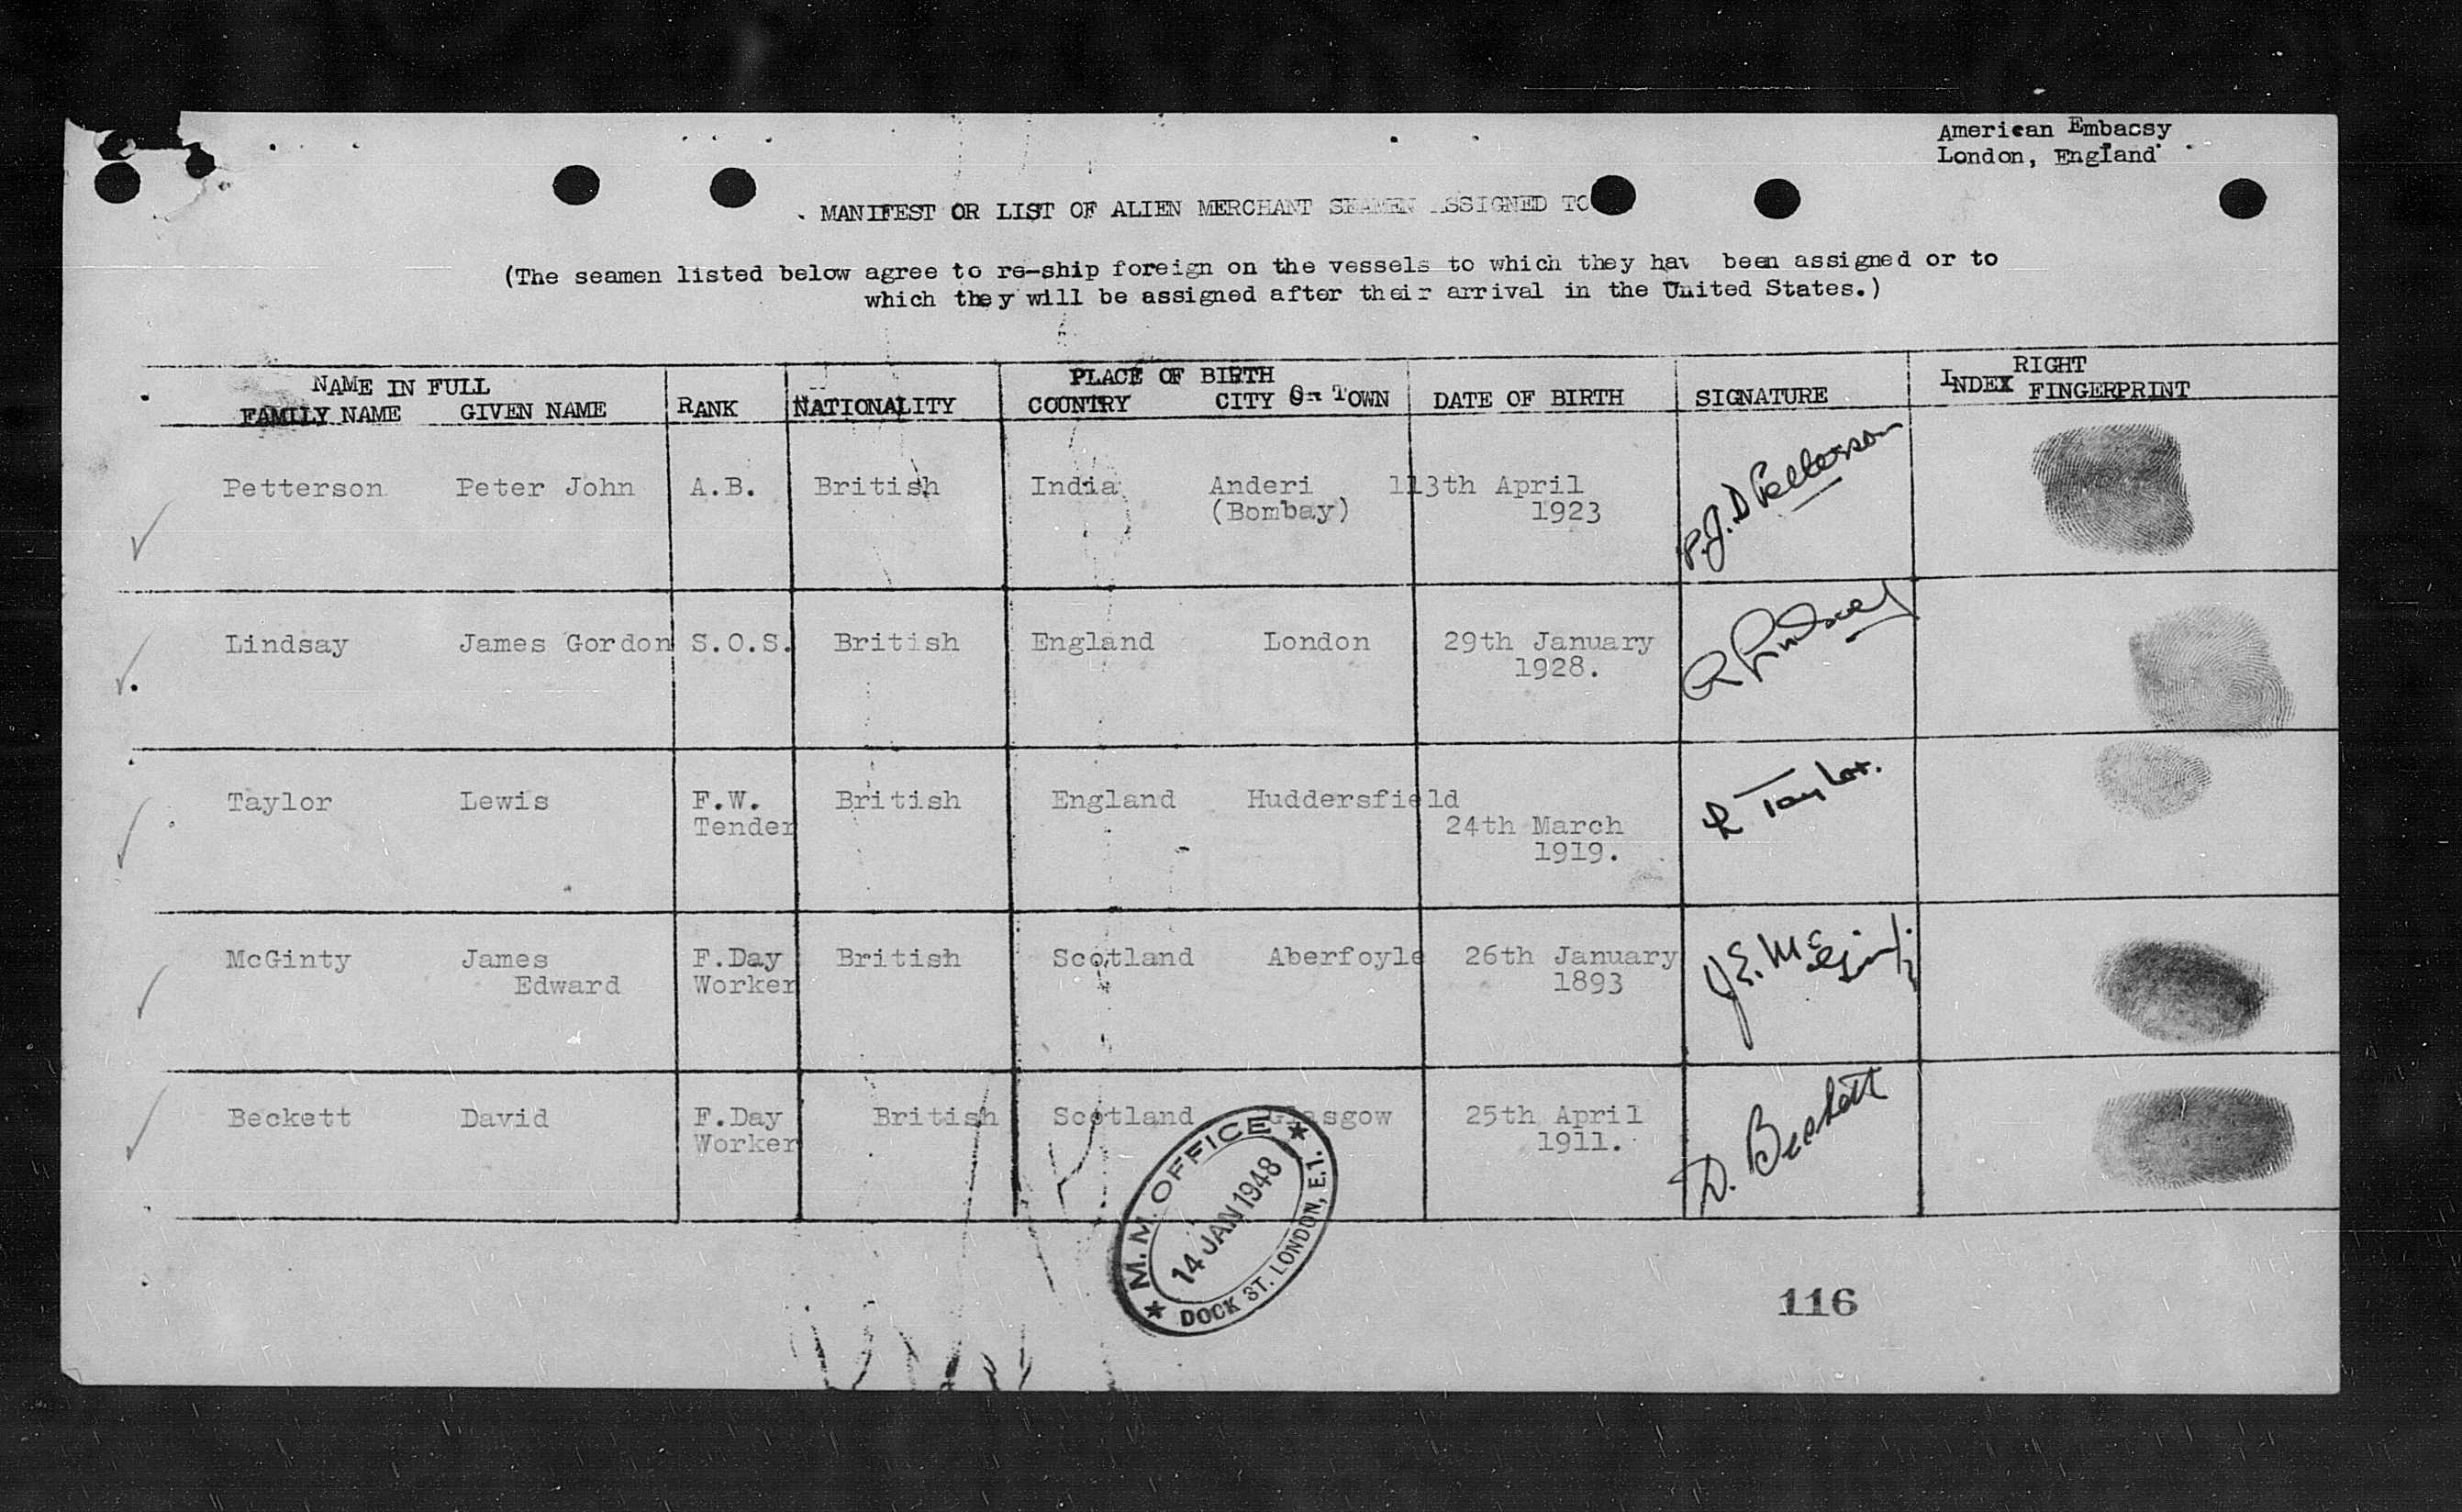 American Embacsy
London, England
MANIFEST OR LIST OF ALIEN MERCHANT SEAMEN ASSIGNED TO
(The seamen listed below agree to re-ship foreign on the vessels to which they hav been assigned or to
which they will be assigned after their arrival in the United States.)
NAME IN FULL PLACE OF BIRTH RIGHT
FAMILY NAME GIVEN NAME RANK NATIONALITY COUNTRY CITY Or TOWN DATE OF BIRTH SIGNATURE INDEX FINGERPRINT
Petterson Peter John A.B. British India Anderi 113th April P.J.D Petterson
(Bombay) 1923
Lindsay James Gordon S.O.S. British England London 29th January Lindsay
1928.
Taylor Lewis F.W. British England Huddersfield L Taylor.
Tender 24th March
1919.
McGinty James F.Day British Scotland Aberfoyle 26th January J.E. McGinty
Edward Worker 1893
Beckett David F.Day British Scotland Glasgow 25th April D. Beckett
Worker 1911.
M.M. OFFICE
14 JAN 1948
DOCK ST. LONDON, E.1.
116